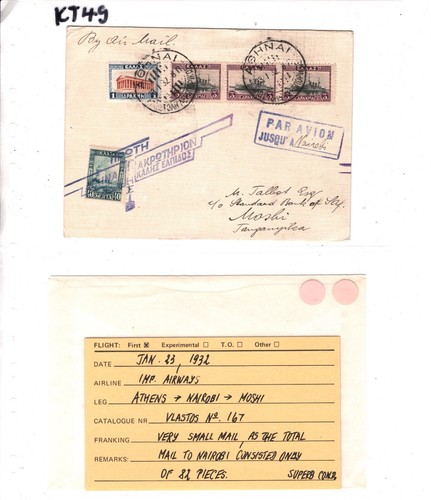 KT49
By Air Mail.
ΕΛΛΑΣ
ΑΘΗΝΑΙ
PAR AVION
JUSQU'A Nairobi
ΑΚΡΩΤΗΡΙΟΝ
ΚΑΛΗΣ ΕΛΠΙΔΟΣ
M. Talbot Esq
c/o Standard Bank of
Moshi
Tanganyika
FLIGHT: First Experimental T.O. Other
DATE JAN. 23, 1932
AIRLINE IMP. AIRWAYS
LEG ATHENS → NAIROBI → MOSHI
CATALOGUE NR VLASTOS Nº. 167
FRANKING VERY SMALL MAIL, AS THE TOTAL
REMARKS: MAIL TO NAIROBI CONSISTED ONLY
OF 22 PIECES. SUPERB COND.